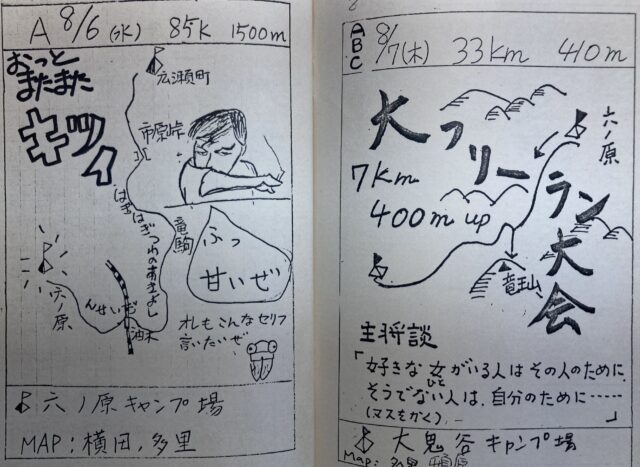 A 8/6(水) 85K 1500m
おっと
またまた
キツイ
広瀬町
市原峠
はぎはぎつわのあきよし
竜駒
ふっ
甘いぜ
六ノ原
んせいざ
油木
オレもこんなセリフ
言いたいぜ
六ノ原キャンプ場
MAP:横田,多里
ABC 8/7(木) 33km 410m
大フリーラン大会
六ノ原
7km
400m up
竜王山
主将談
「好きな女がいる人はその人のために
ひと
そうでない人は、自分のために……
(マスもかく)
大鬼谷キャンプ場
Map:多里